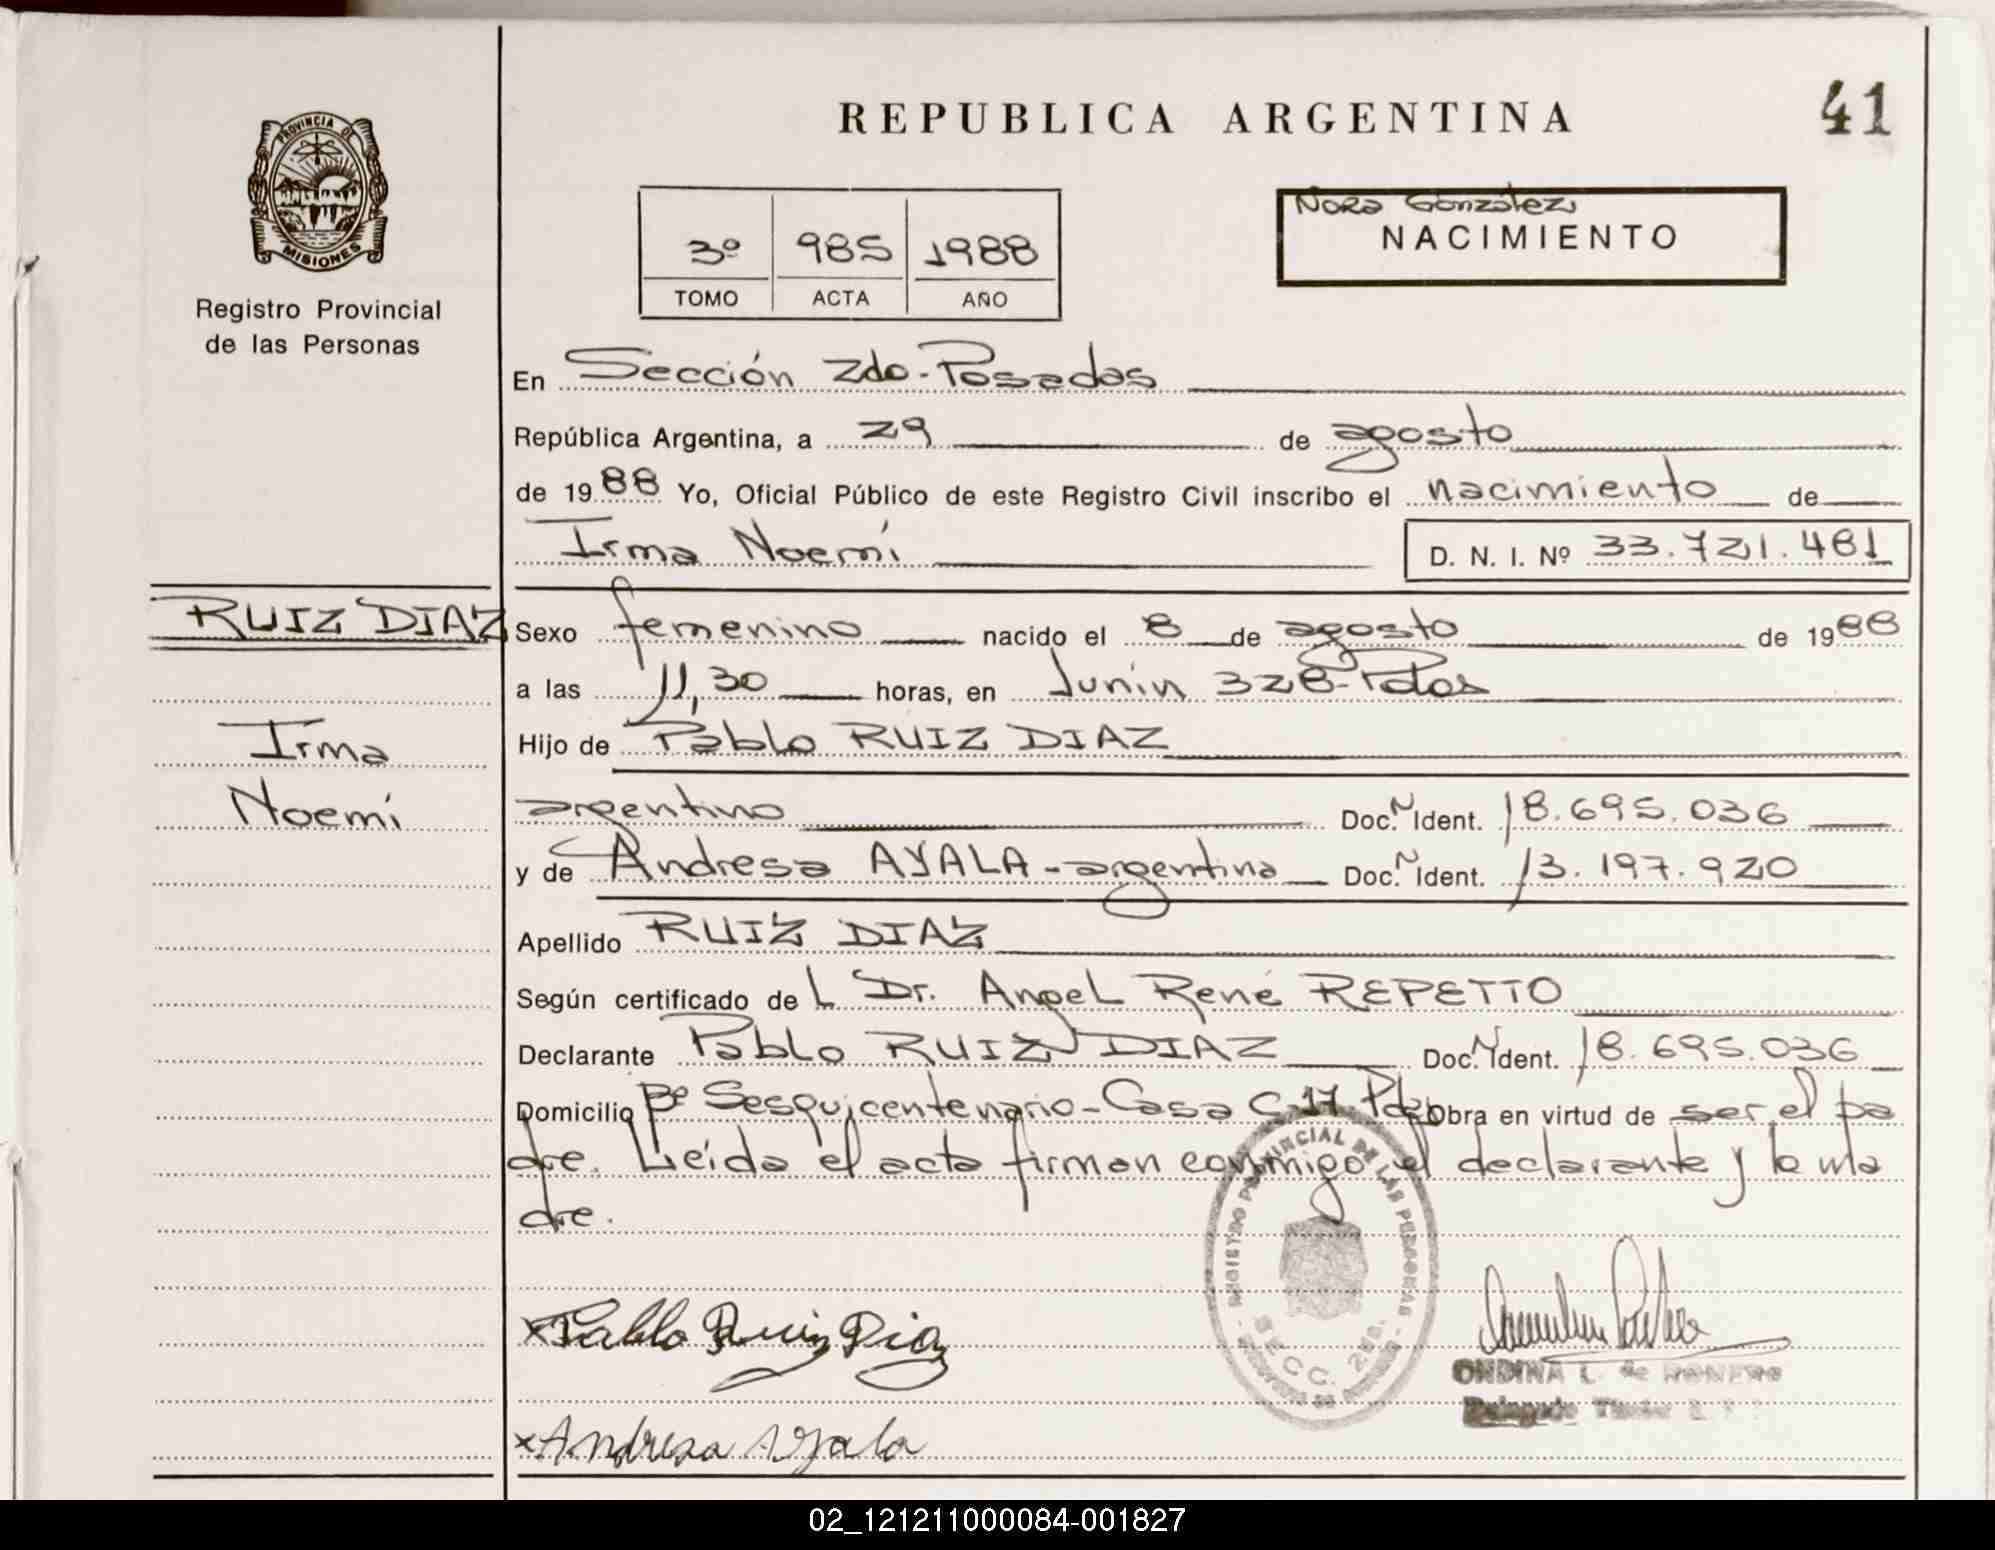 REPUBLICA ARGENTINA
41
PROVINCIA DE
MISIONES
Registro Provincial
de las Personas
3º 985 1988
TOMO ACTA AÑO
Nora González
NACIMIENTO
En Sección 2do.-Posadas
República Argentina, a 29 de agosto
de 1988 Yo, Oficial Público de este Registro Civil inscribo el nacimiento de
Irma Noemí
D. N. I. Nº 33.721.481
RUIZ DIAZ
Irma
Noemí
Sexo femenino nacido el 8 de agosto de 1988
a las 11,30 horas, en Junín 328-Pdas
Hijo de Pablo RUIZ DIAZ
argentino Doc. N Ident. 18.695.036
y de Andresa AYALA-argentina Doc. N Ident. 13.197.920
Apellido RUIZ DIAZ
Según certificado de L Dr. Angel René REPETTO
Declarante Pablo RUIZ DIAZ Doc. N Ident. 18.695.036
Domicilio Bº Sesquicentenario-Casa C-17 Pdas Obra en virtud de ser el pa
dre. Leída el acta firman conmigo el declarante y la ma
dre.
REGISTRO PROVINCIAL DE LAS PERSONAS
SECC. 2da.
xPablo Ruiz Diaz
ONDINA L. de ROMERO
Delegado Titular
xAndresa Ayala
02_121211000084-001827